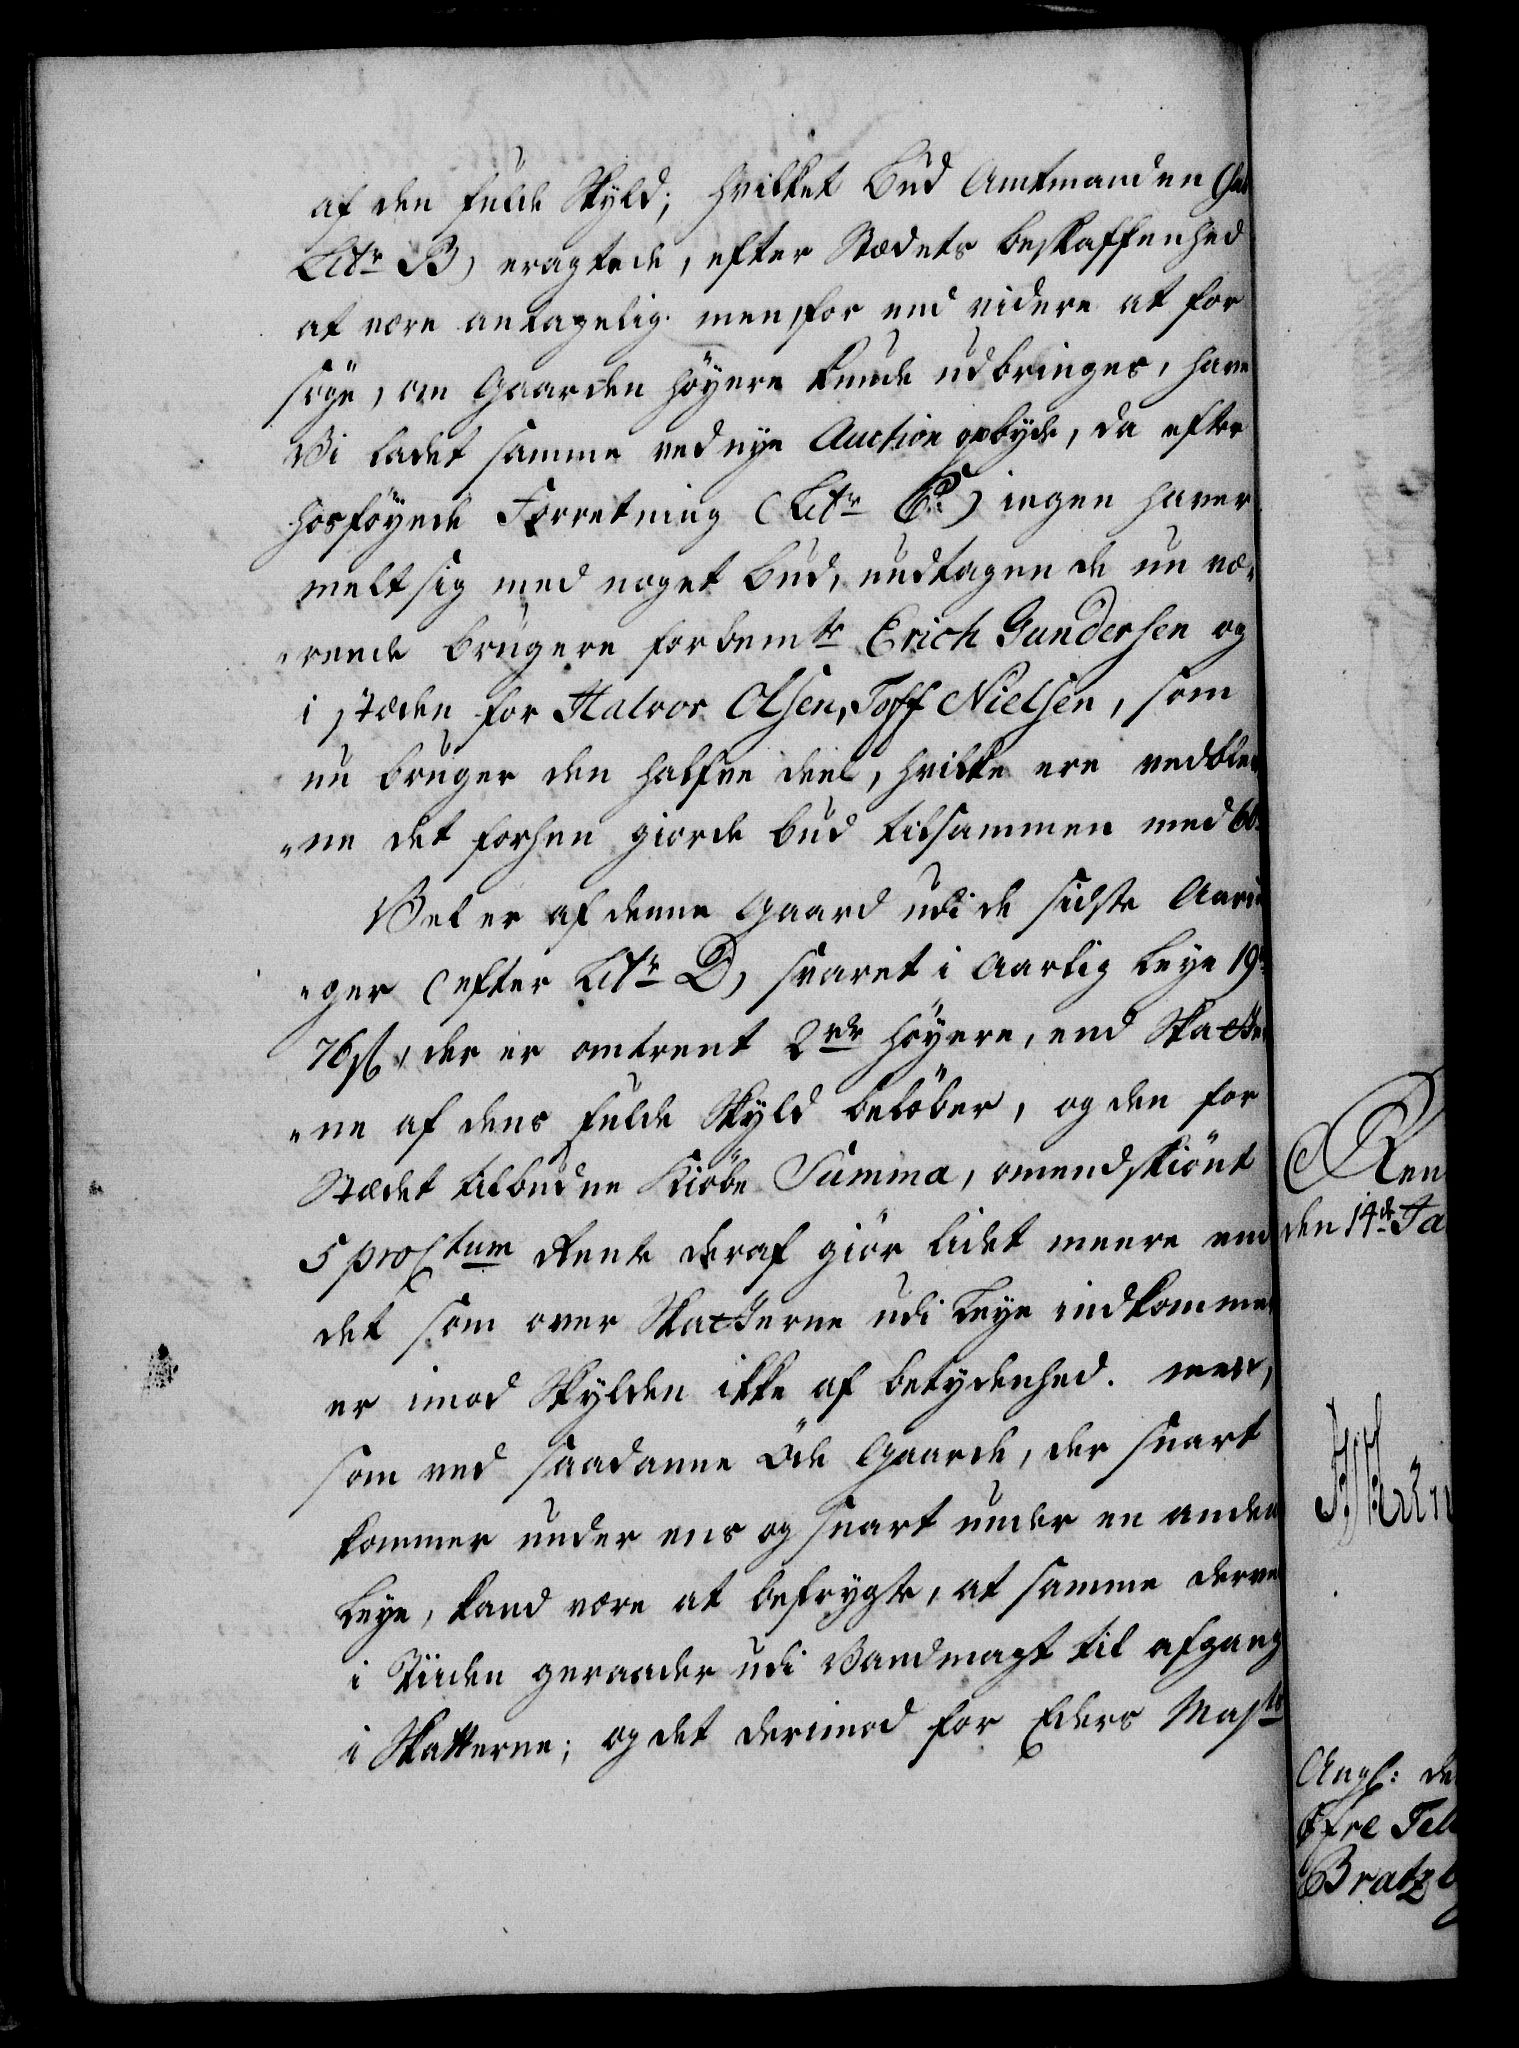 af den fulde Skyld; hvilket Bud Amtmanden
Litr B) eragtede, efter Stædets beskaffenhed
at være antagelig. men for end videre at for
söge, om Gaarden höyere kunde udbringes, have
Vi ladet samme ved nye Auction opbyde, da efter
hosföyede Forretning (Litr C.) ingen haver
meldt sig med noget bud, undtagen de nu væ-
"rende brugere forbemte Erich Gundersen og
i stæden for Halvor Olsen, Toff Nielsen, som
nu bruger den halfve deel, hvilke ere vedblev
"ne det forhen giorde bud tilsammen med
Vel er af denne Gaard udi de sidste Aarin
"ger (efter Litr D) svaret i Aarlig Leye 19
76 s, der er omtrent 2 rdr höyere, end Skatte
"ne af dens fulde Skyld belöber, og den for
Stædet tilbudne Kiöbe Summa, omendskiönt
5 proCtum Rente deraf giör lidet meere end
det som over Skatterne udi Leye indkommer
er imod Skylden ikke af betydenhed. men,
som ved saadanne Öde Gaarde, der snart
kommer under eens og snart under en anden
Leye, kand være at befrygte, at samme derved
i Tiiden geraader udi Vandmagt til afgang
i Skatterne; og det derimod for Eders Mayts
Ren
den 14de Ja
Ang: de
Öfre Tell
Bratzb